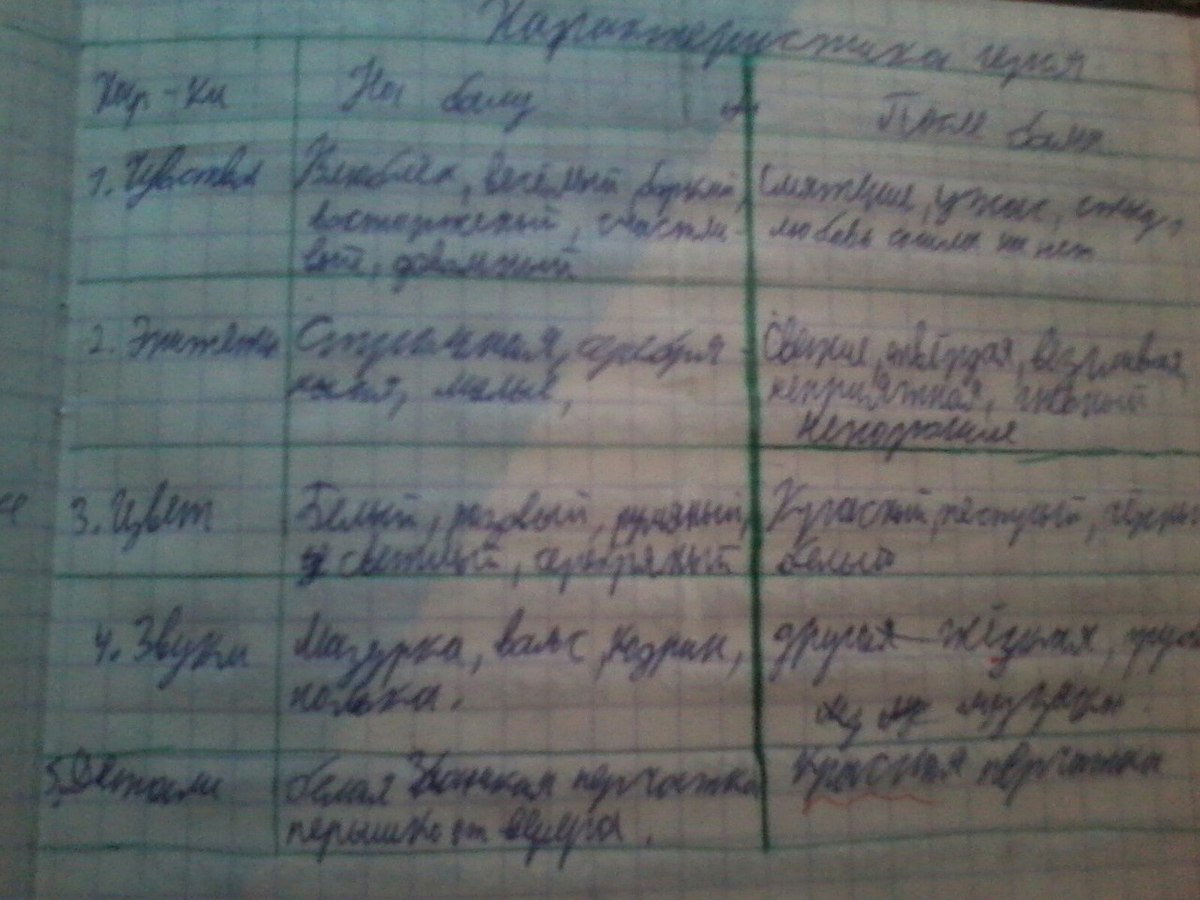 Характеристика героя
Хар-ки На балу После бала
1. Чувства Влюблён, весёлый, бодрый, Смятение, ужас, стыд,
восторженый, счастли- любовь сошла на нет
вый, довольный
2. Эпитеты Стройная, серебря- Свежие, твёрдая,
ными, милые, неприятная,
3. Цвет Белый, розовый, румяный, Красный, пестрый, чёрный
светлый, серебряный белый
4. Звуки Мазурка, вальс, кадриль, другая жёсткая,
полька. музыка.
5. Детали белая Варенькая перчатка красная перчатка
пёрышко от веера.